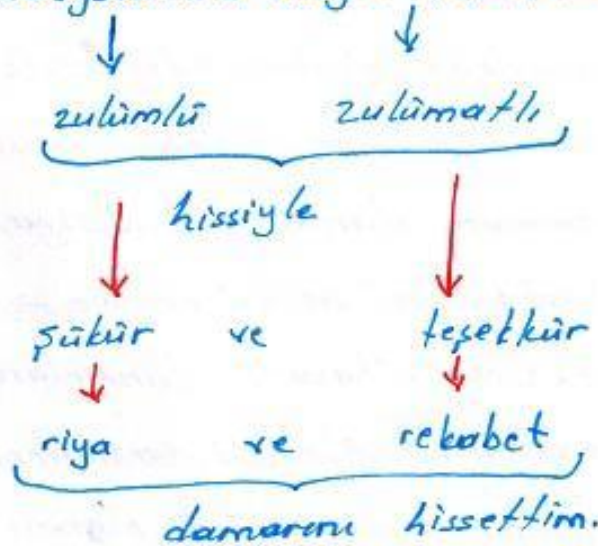 zulümlü zulümatlı
hissiyle
şükür ve teşekkür
riya ve rekabet
damarını hissettim.